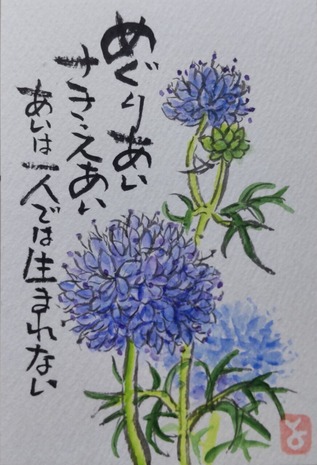 めぐりあい
ささえあい
あいは一人では生まれない
と